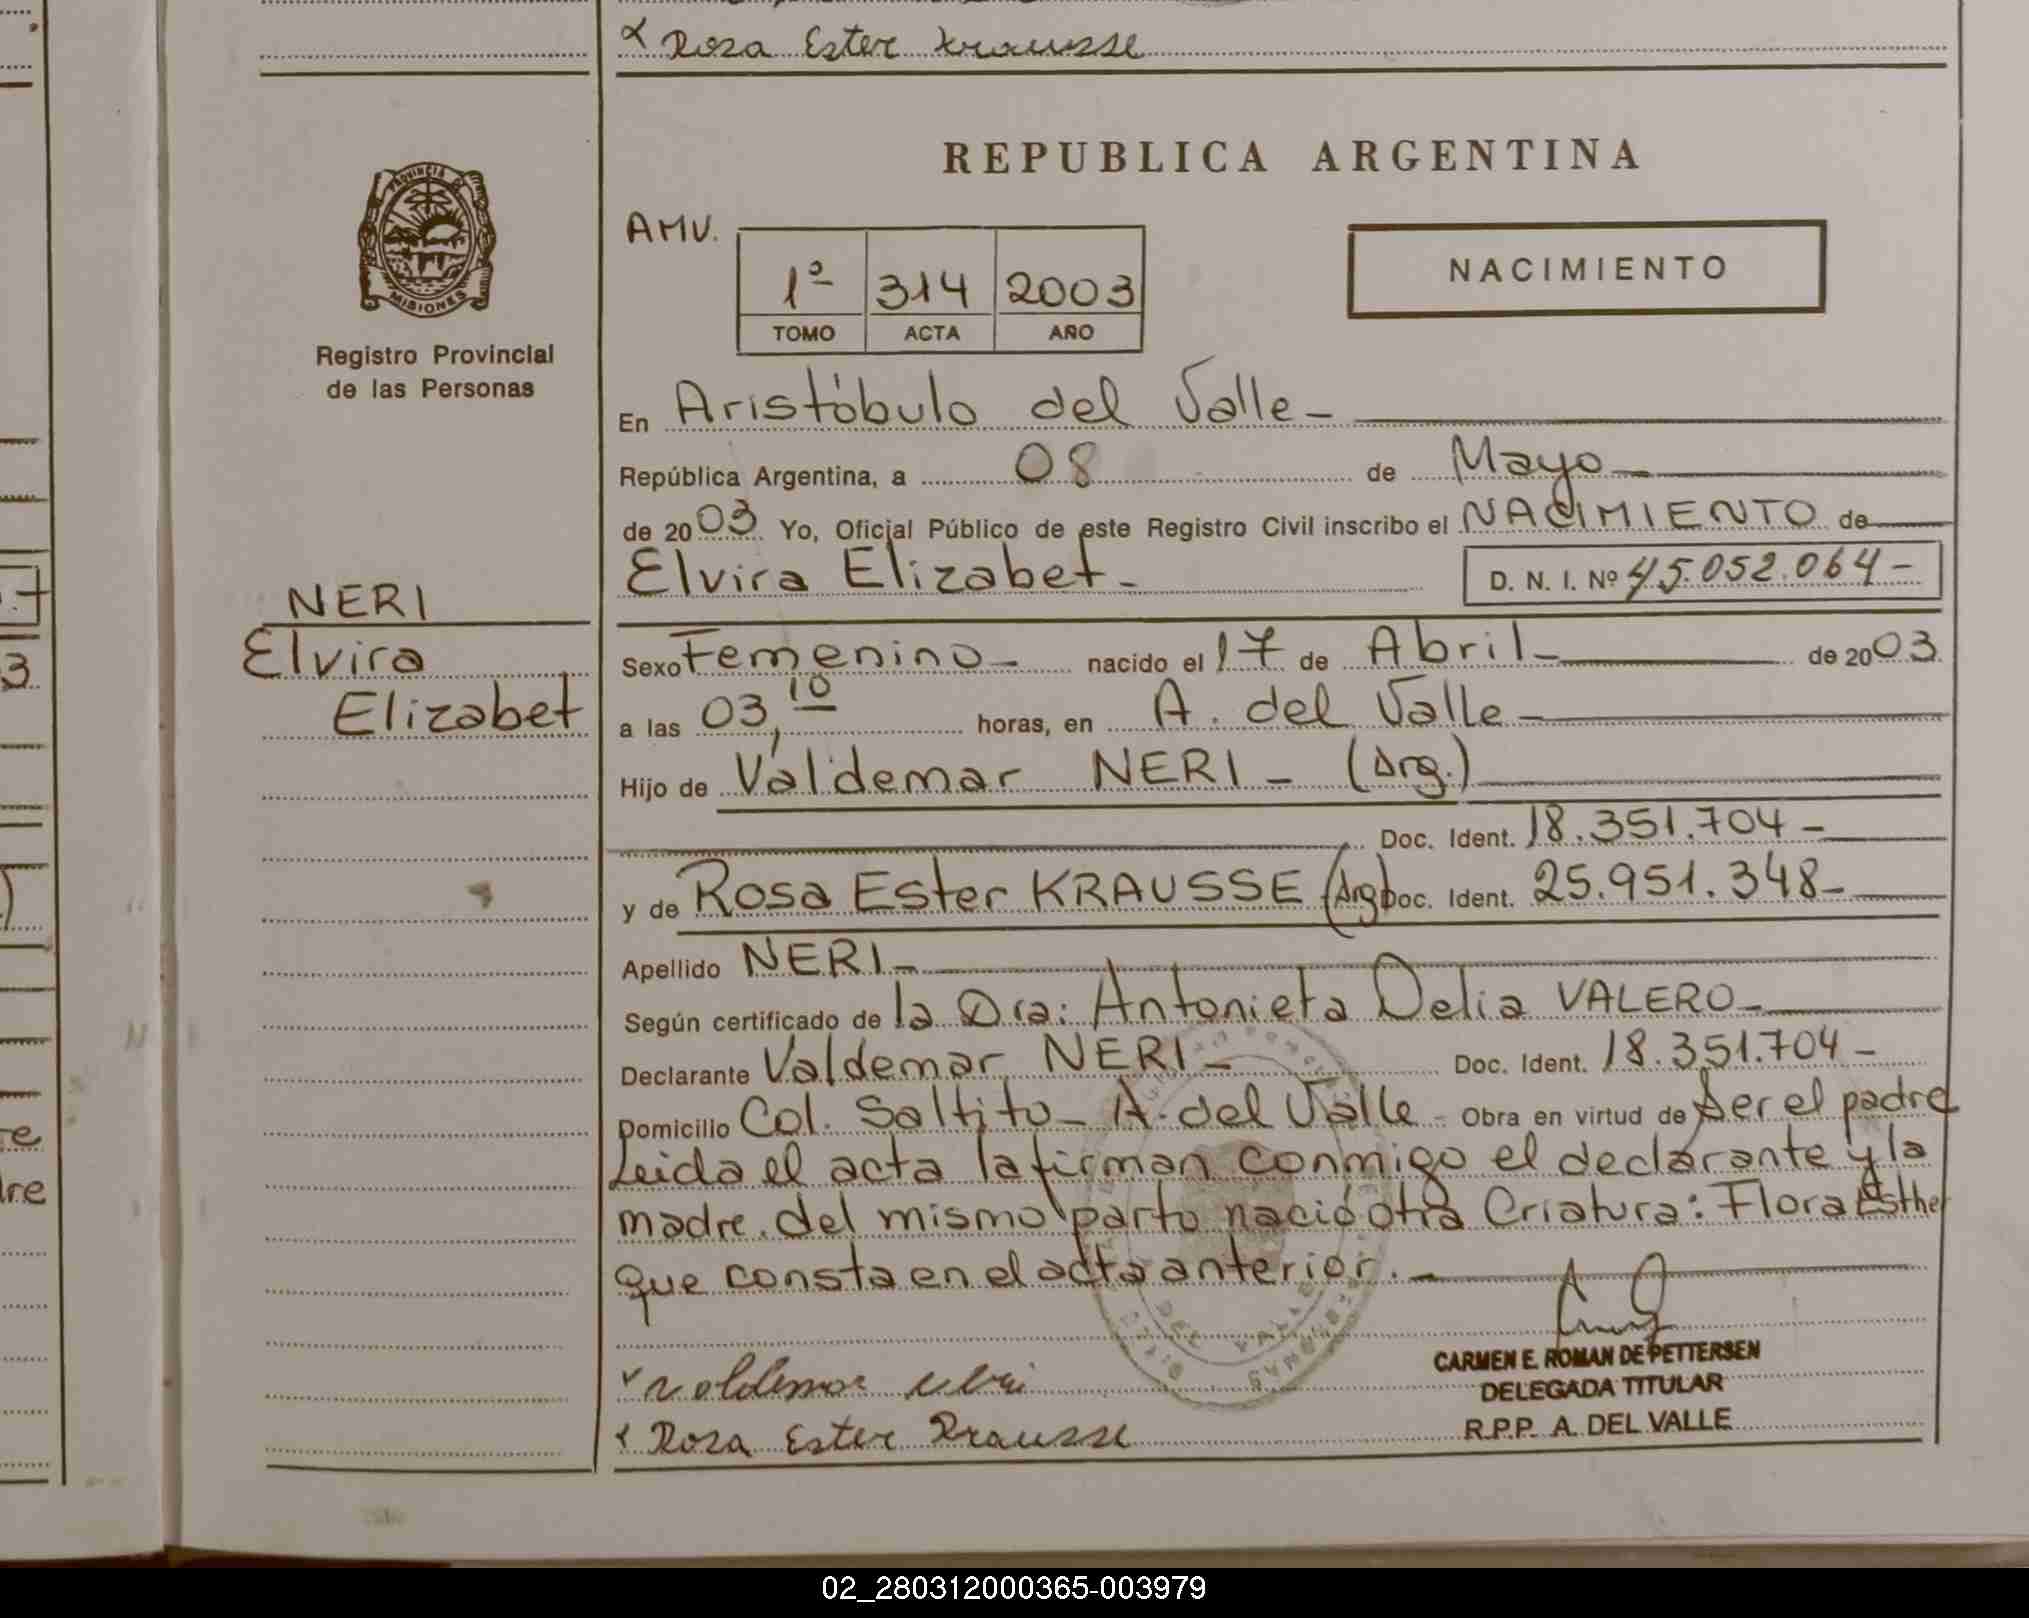 Rosa Ester Krausse
REPUBLICA ARGENTINA
PROVINCIA DE
MISIONES
Registro Provincial
de las Personas
AMV.
1º 314 2003
TOMO ACTA AÑO
NACIMIENTO
En Aristóbulo del Valle -
República Argentina, a 08 de Mayo
de 2003 Yo, Oficial Público de este Registro Civil inscribo el NACIMIENTO de
Elvira Elizabet - D. N. I. Nº 45.052.064 -
NERI
Elvira
Elizabet
Sexo Femenino - nacido el 17 de Abril - de 2003
a las 03,10 horas, en A. del Valle -
Hijo de Valdemar NERI - (Arg.)
Doc. Ident. 18.351.704 -
y de Rosa Ester KRAUSSE (Arg) Doc. Ident. 25.951.348 -
Apellido NERI -
Según certificado de la Dra: Antonieta Delia VALERO -
Declarante Valdemar NERI - Doc. Ident. 18.351.704 -
Domicilio Col. Saltito - A. del Valle - Obra en virtud de Ser el padre
Leida el acta la firman conmigo el declarante y la
madre. del mismo parto nació otra Criatura: Flora Esther
que consta en el acta anterior. -
Valdemar Neri
Rosa Ester Krausse
CARMEN E. ROMAN DE PETTERSEN
DELEGADA TITULAR
R.P.P. A. DEL VALLE
02_280312000365-003979